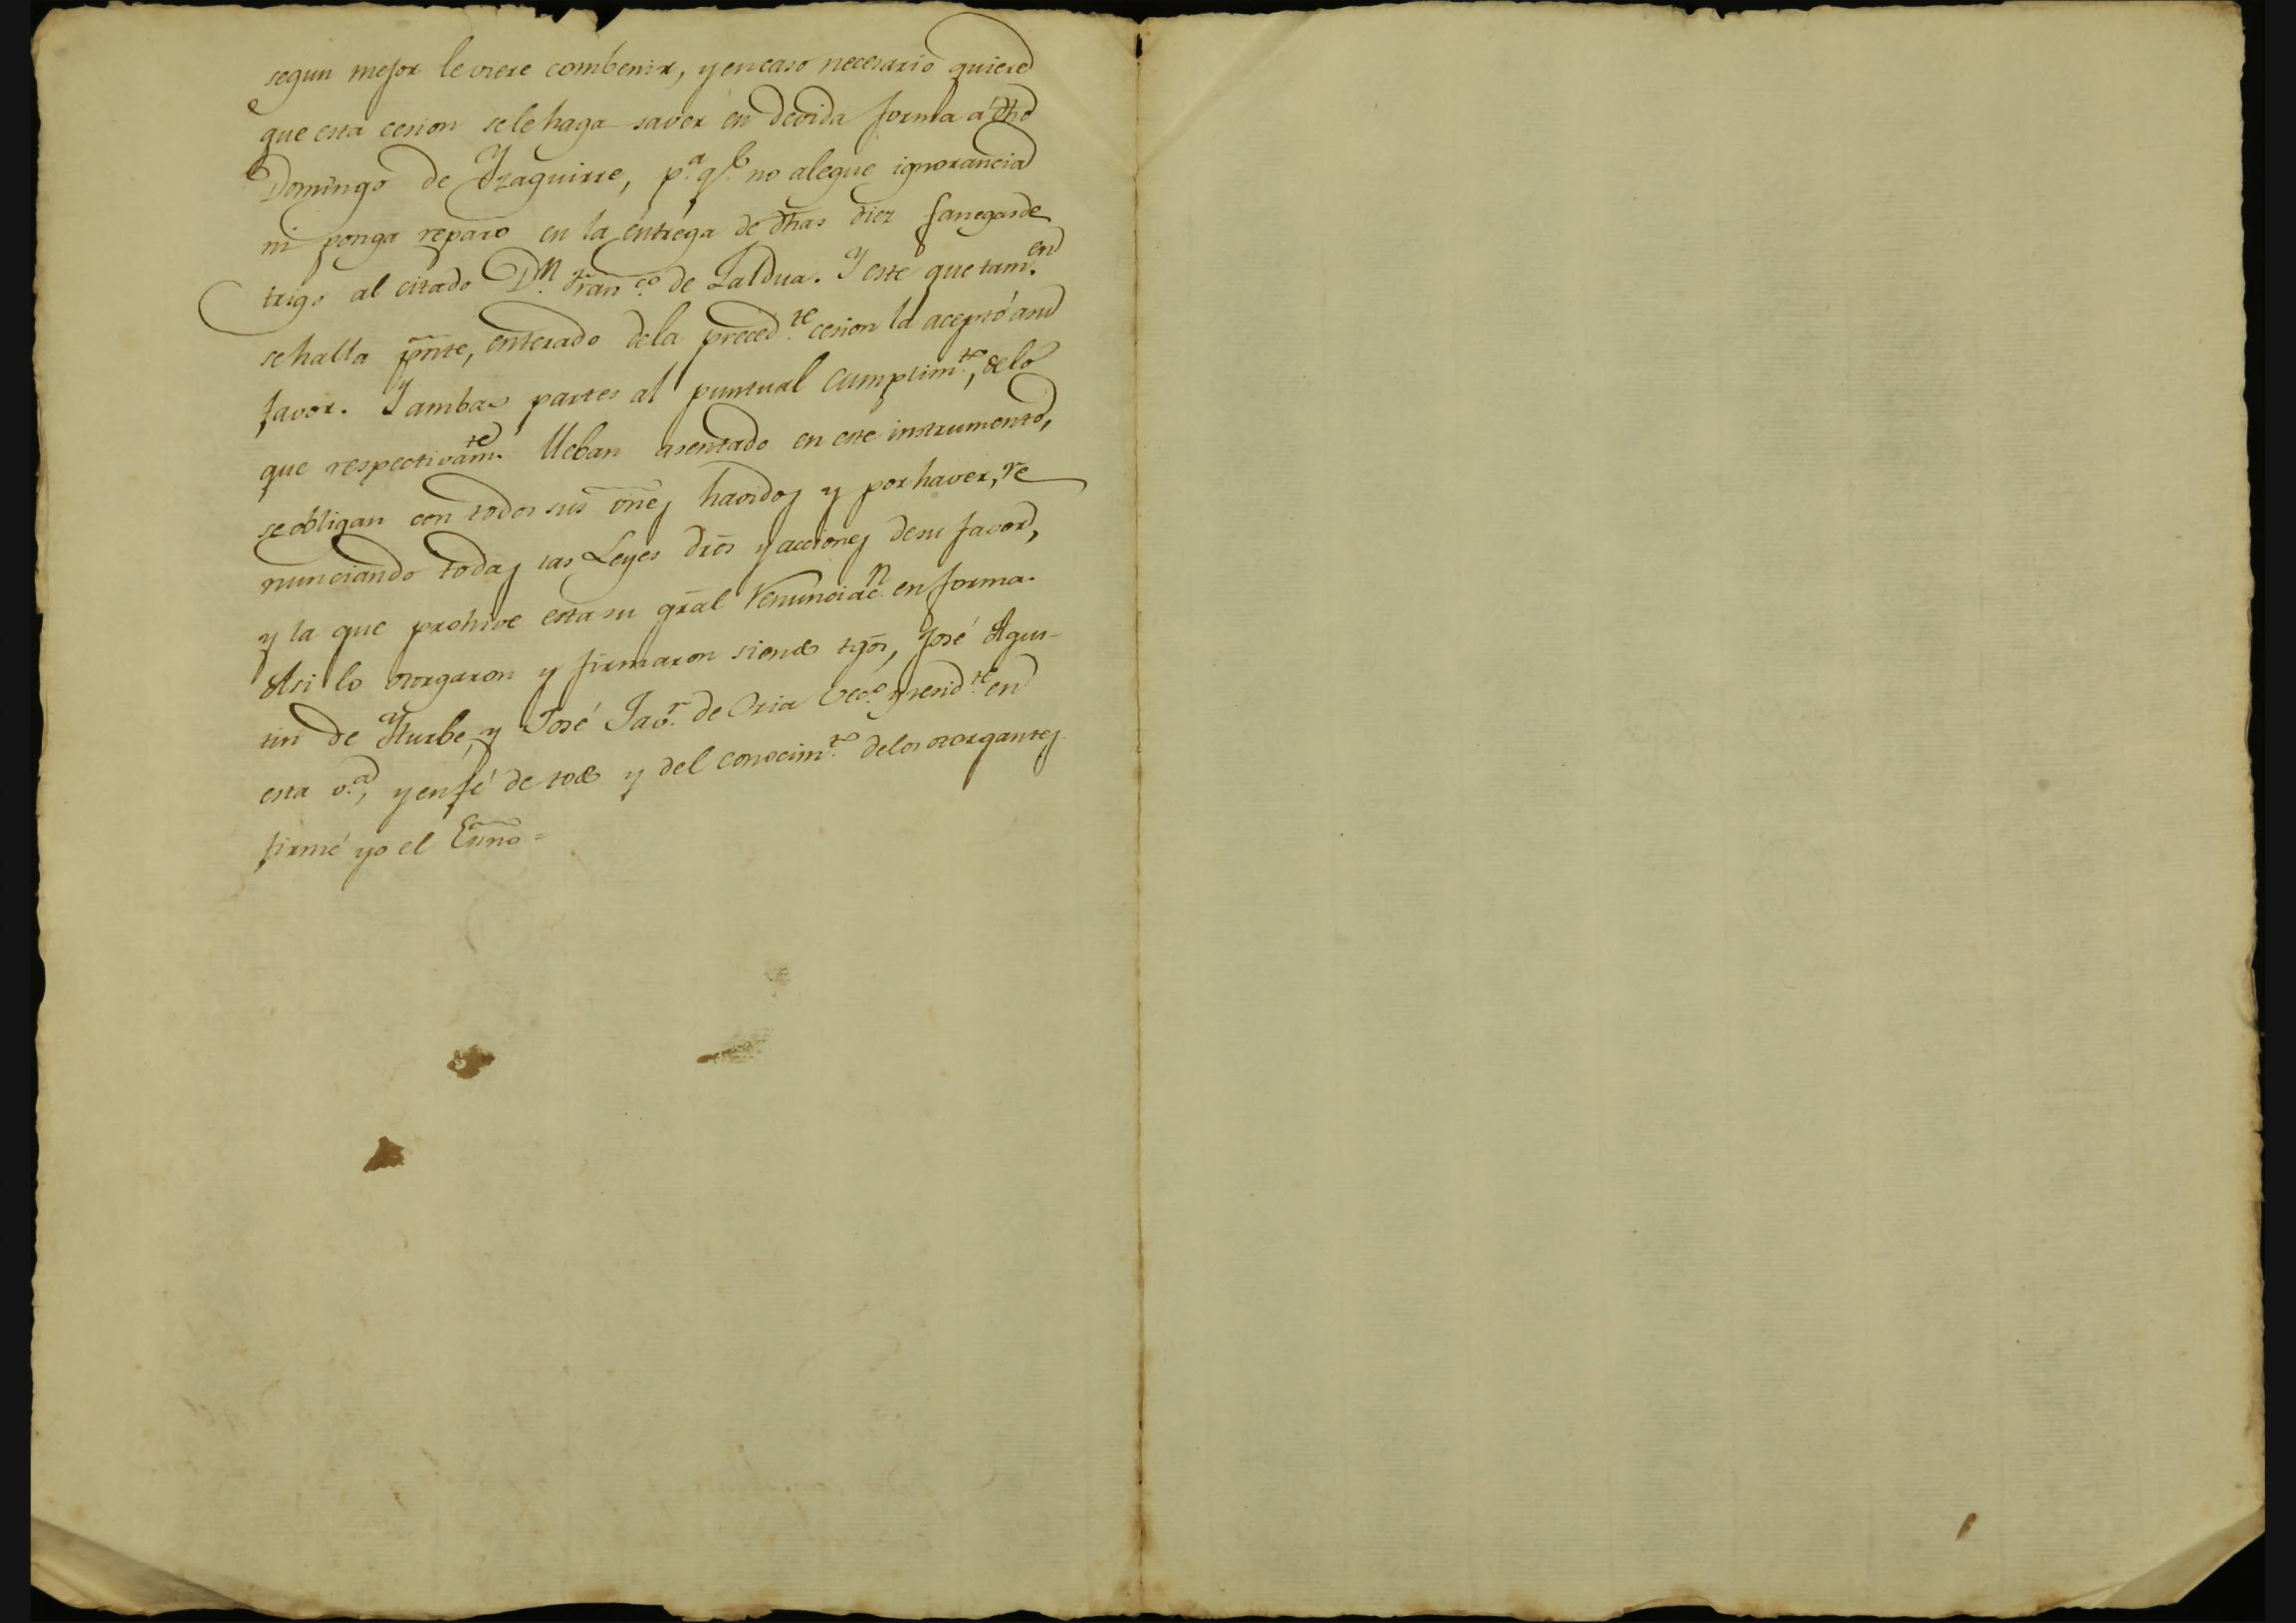 segun mejor le viere combenir, y en caso necesario quiere
que esta cesion se le haga saver en devida forma a dho
Domingo de Yzaguirre, p.a q.e no alegue ignorancia
ni ponga reparo en la entréga de dhas diez fanegas de
trigo al citado D.n Fran.co de Zaldua. Y este que tam.en
se halla pnte, enterado de la preced.te cesion la aceptó a su
favor. Y ambas partes al puntual cumplim.to, de lo
que respectivam.te lleban asentado en este instrumento,
se obligan con todos sus vnes havidos y por haver, re
nunciando todas las Leyes dros y acciones de su favor,
y la que prohive esta su gral renunciac.n en forma.
Asi lo otorgaron y firmaron siendo tgos, José Agus-
tin de Yturbe, y José Jav.r de Oria vec.o y resid.te en
esta v.a, y en fé de todo y del conocim.to de los otorgantes
firmé yo el Essno =